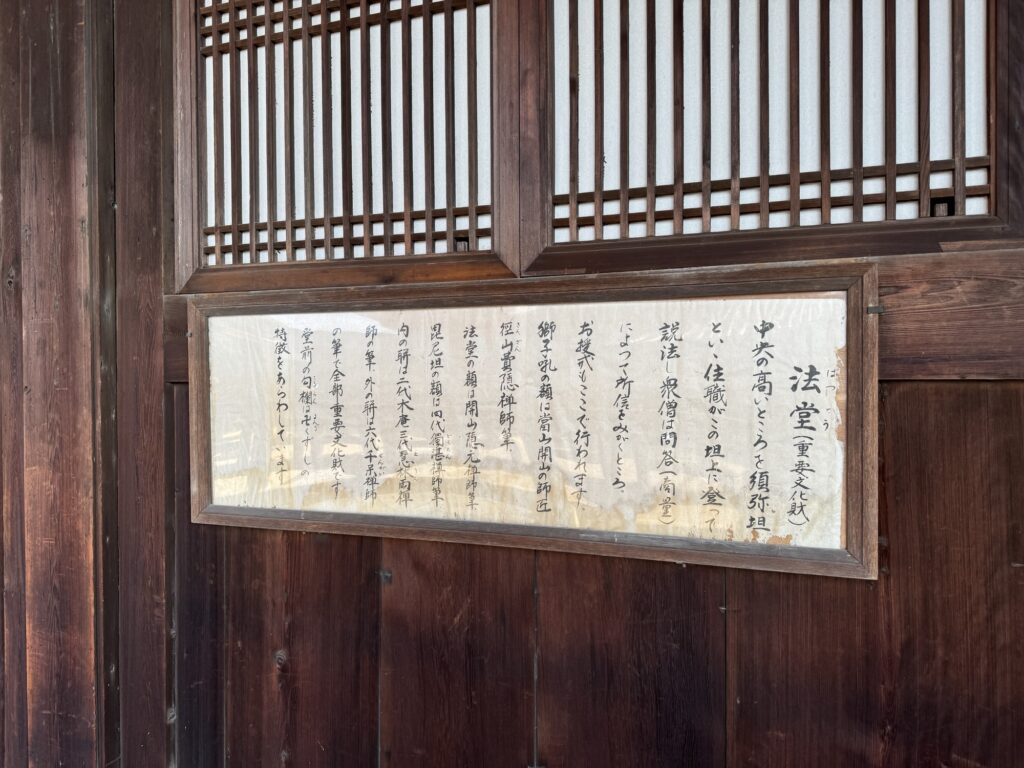 はっとう
法堂(重要文化財)
中央の高いところを須弥坦
といゝ住職がこの坦上に登って
説法し衆僧は問答(商量)
によって所信をみがくところ、
お授戒もここで行われます。
獅子吼の額は當山開山の師匠
径山費隠禅師筆、
法堂の額は開山隠元禅師筆、
毘尼坦の額は四代獨湛禅師筆
内の聯は二代木庵三代慧林両禅
師の筆、外の聯は六代千呆禅師
の筆で全部重要文化財です
堂前の勾欄は卍すしの
特徴をあらわしています